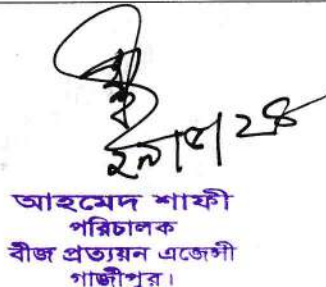 আহমেদ শাফী
পরিচালক
বীজ প্রত্যয়ন এজেন্সী
গাজীপুর।